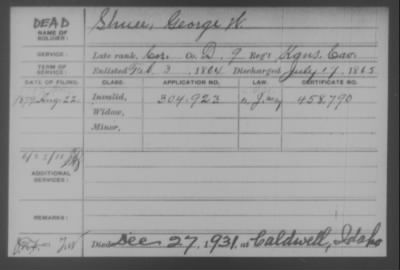 DEAD
NAME OF SOLDIER:
George W.
SERVICE:
Late rank, Cor. Co. D, 9 Reg't Kans. Cav.
TERM OF SERVICE
Enlisted Feb 3, 1864 Discharged July 17, 1865
DATE OF FILING.
CLASS.
APPLICATION NO.
CERTIFICATE NO.
1879 Aug. 22.
Invalid,
304.923
458.790
Widow,
Minor,
ADDITIONAL SERVICES:
REMARKS:
Died Dec 27, 1931, at Caldwell, Idaho